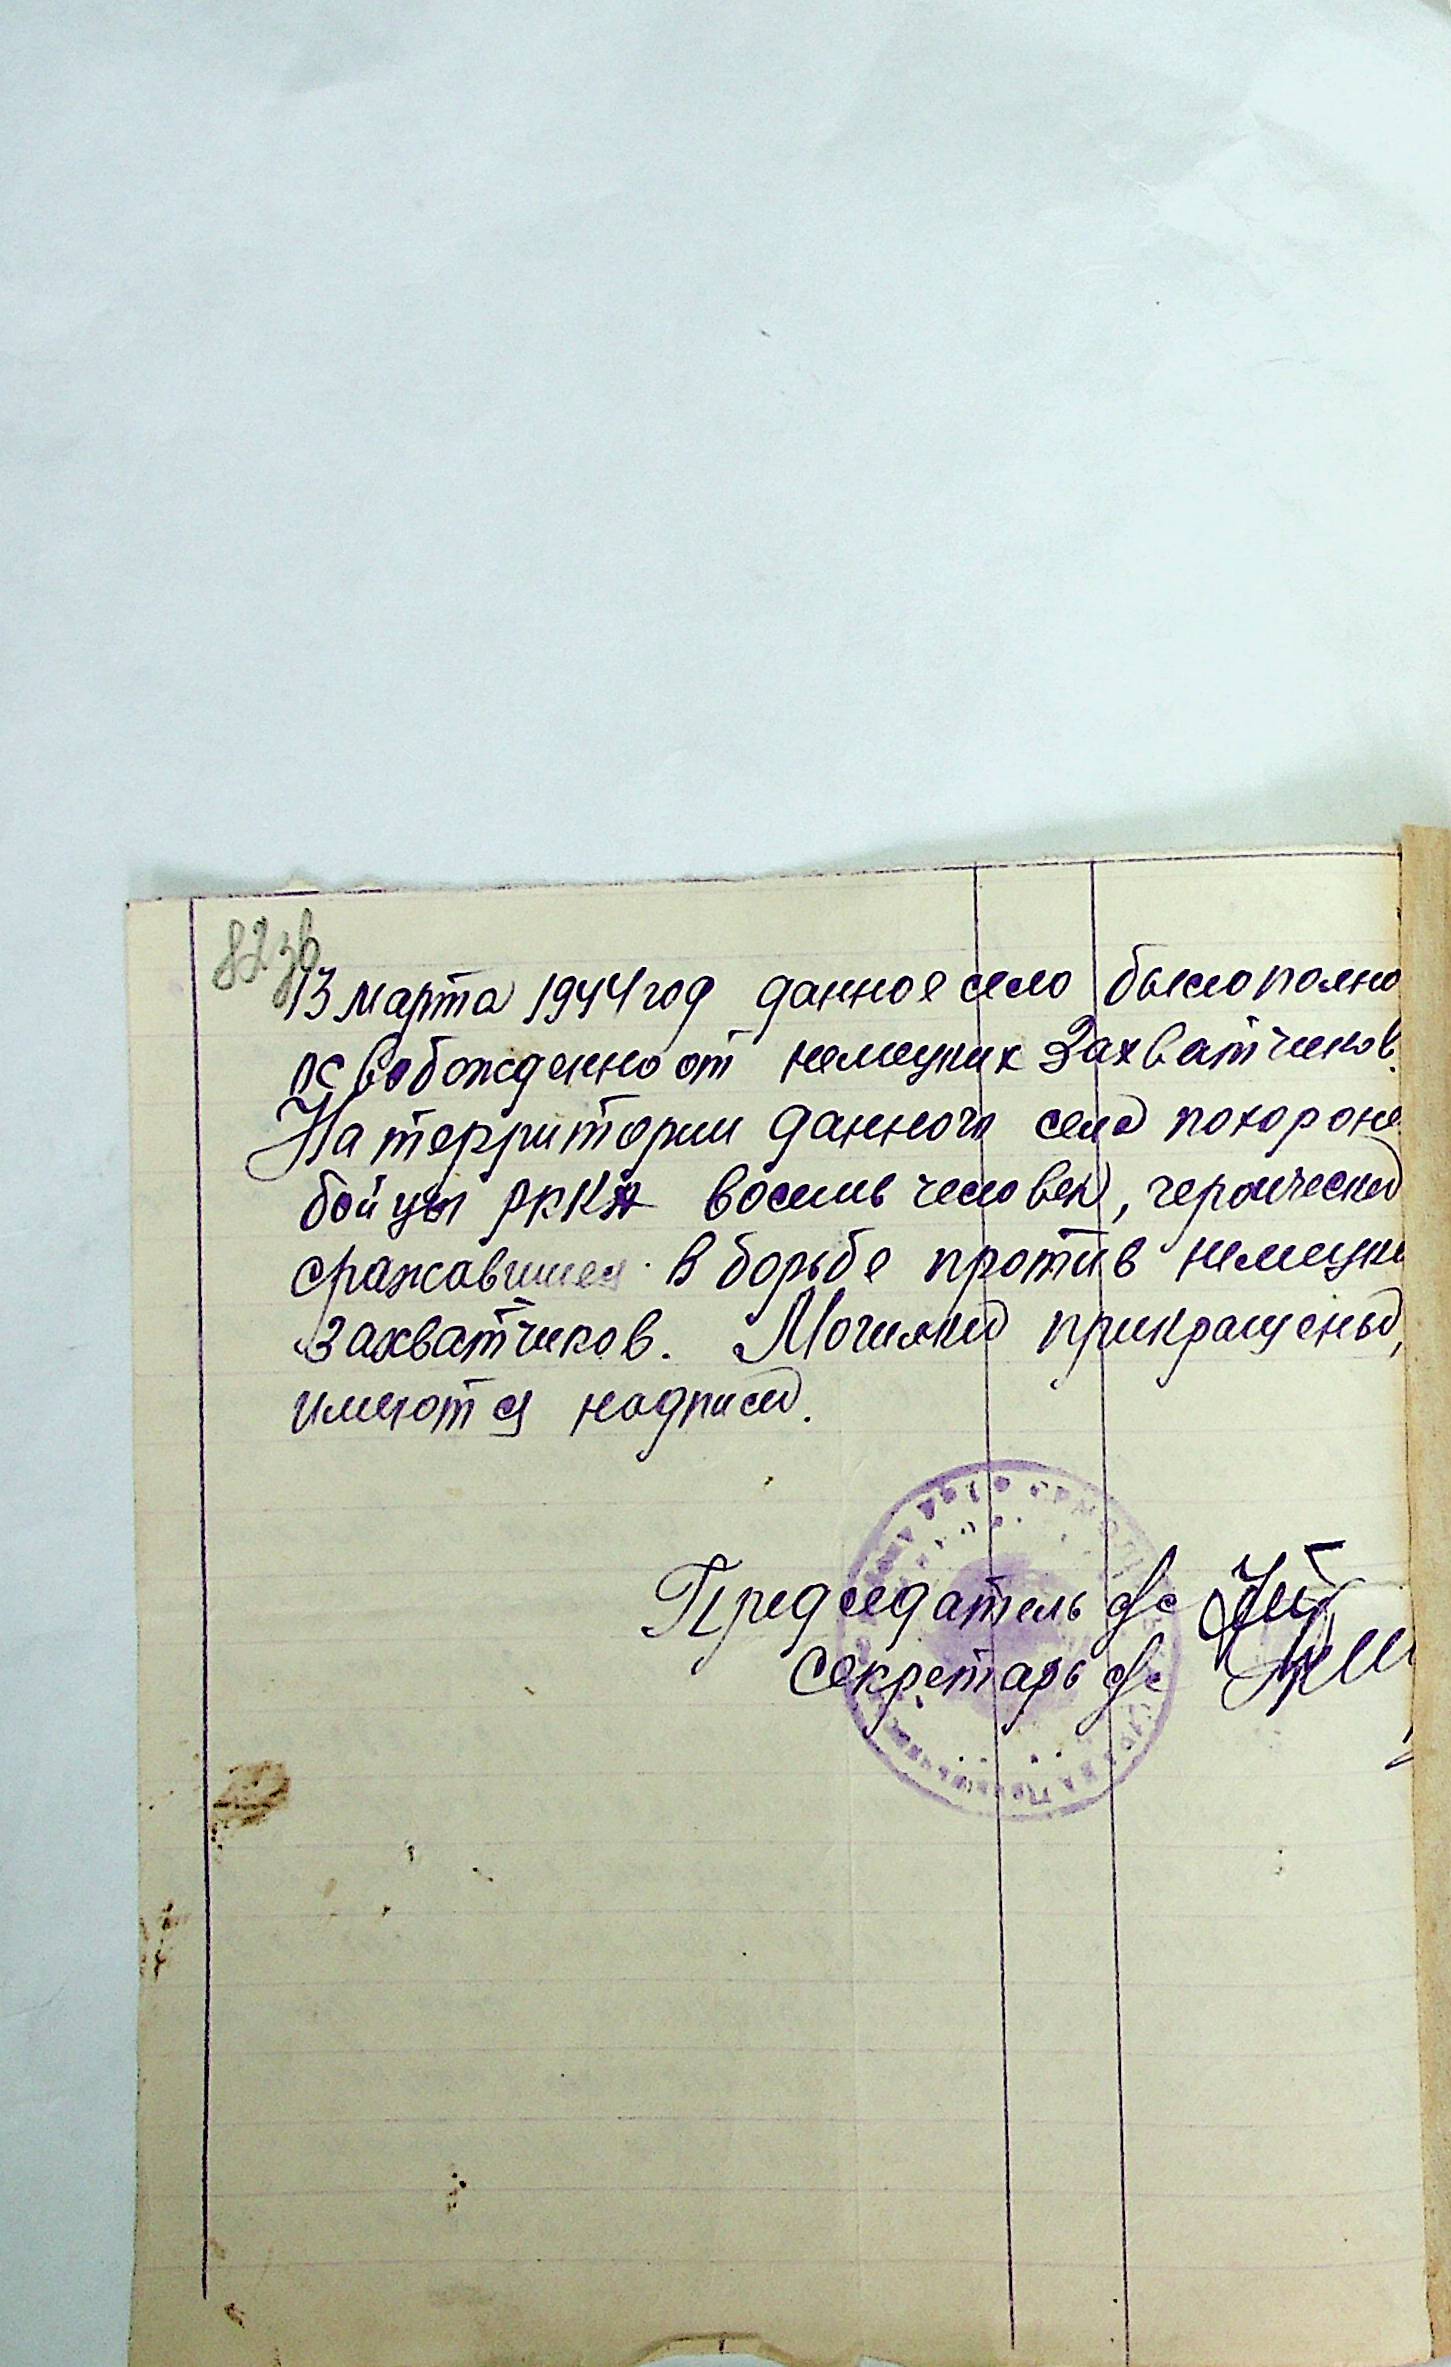 82 зв
13 марта 1944 год данное село было полно
освобожденно от немецких захватчиков.
На территории данного села похороне
бойцы РККА восемь человек, героически
сражавшиеся в борьбе против немецки
захватчиков. Могилки прикрашены,
имеются надписи.
Председатель с/с
Секретарь с/с